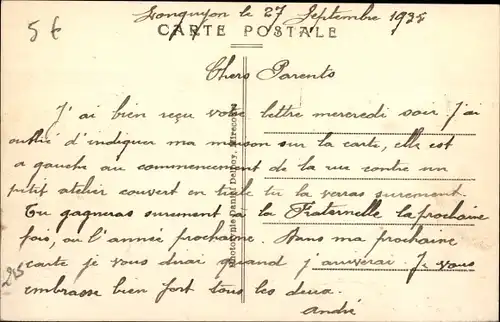 5 €
Longuyon le 27 Septembre 1935
CARTE POSTALE
Chers Parents
J'ai bien reçu votre lettre mercredi soir J'ai
oublié d'indiquer ma maison sur la carte, elle est
a gauche au commencement de la rue contre un
petit atelier couvert en tuile tu la veras surement.
Tu gagneras surement à la Fraternelle la prochaine
fois, ou l'année prochaine. Dans ma prochaine
carte je vous dirai quand j'arriverai. Je vous
embrasse bien fort tous les deux.
André
Daniel Delboy, Mirecourt